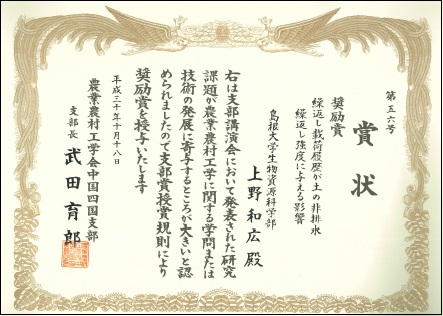 第五六号
賞状
奨励賞
繰返し載荷履歴が土の非排水
繰返し強度に与える影響
島根大学生物資源科学部
上野和広殿
右は支部講演会において発表された研究
課題が農業農村工学に関する学問または
技術の発展に寄与するところが大きいと認
められましたので支部賞授賞規則により
奨励賞を授与いたします
平成三十年十月十八日
農業農村工学会中国四国支部
支部長 武田育郎